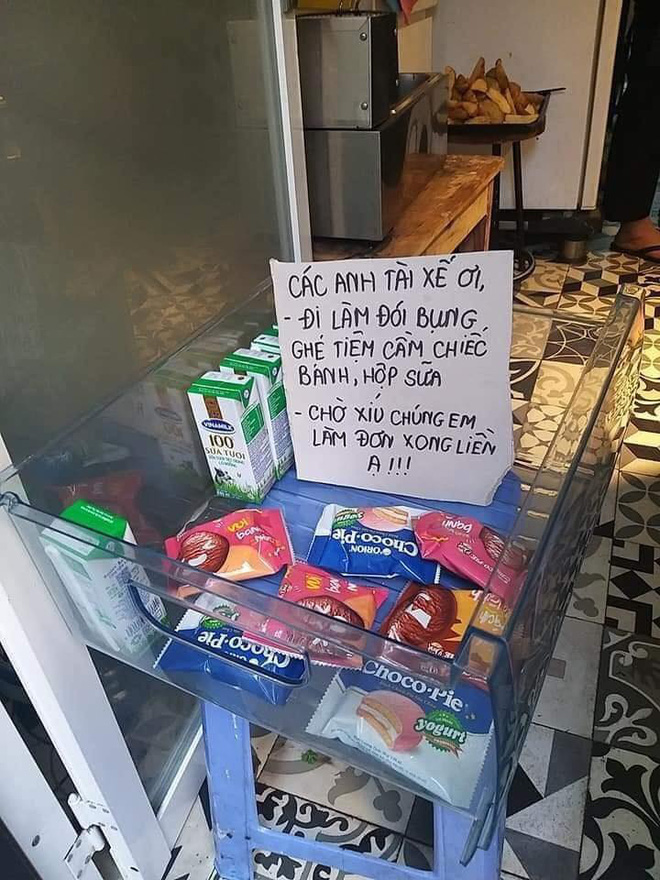 CÁC ANH TÀI XẾ ƠI,
- ĐI LÀM ĐÓI BỤNG
GHÉ TIỆM CẦM CHIẾC
BÁNH, HỘP SỮA
- CHỜ XÍU CHÚNG EM
LÀM ĐƠN XONG LIỀN
Ạ!!!
VINAMILK
100
SỮA TƯƠI
ORION
Choco·Pie
Choco·Pie
Choco·Pie
yogurt